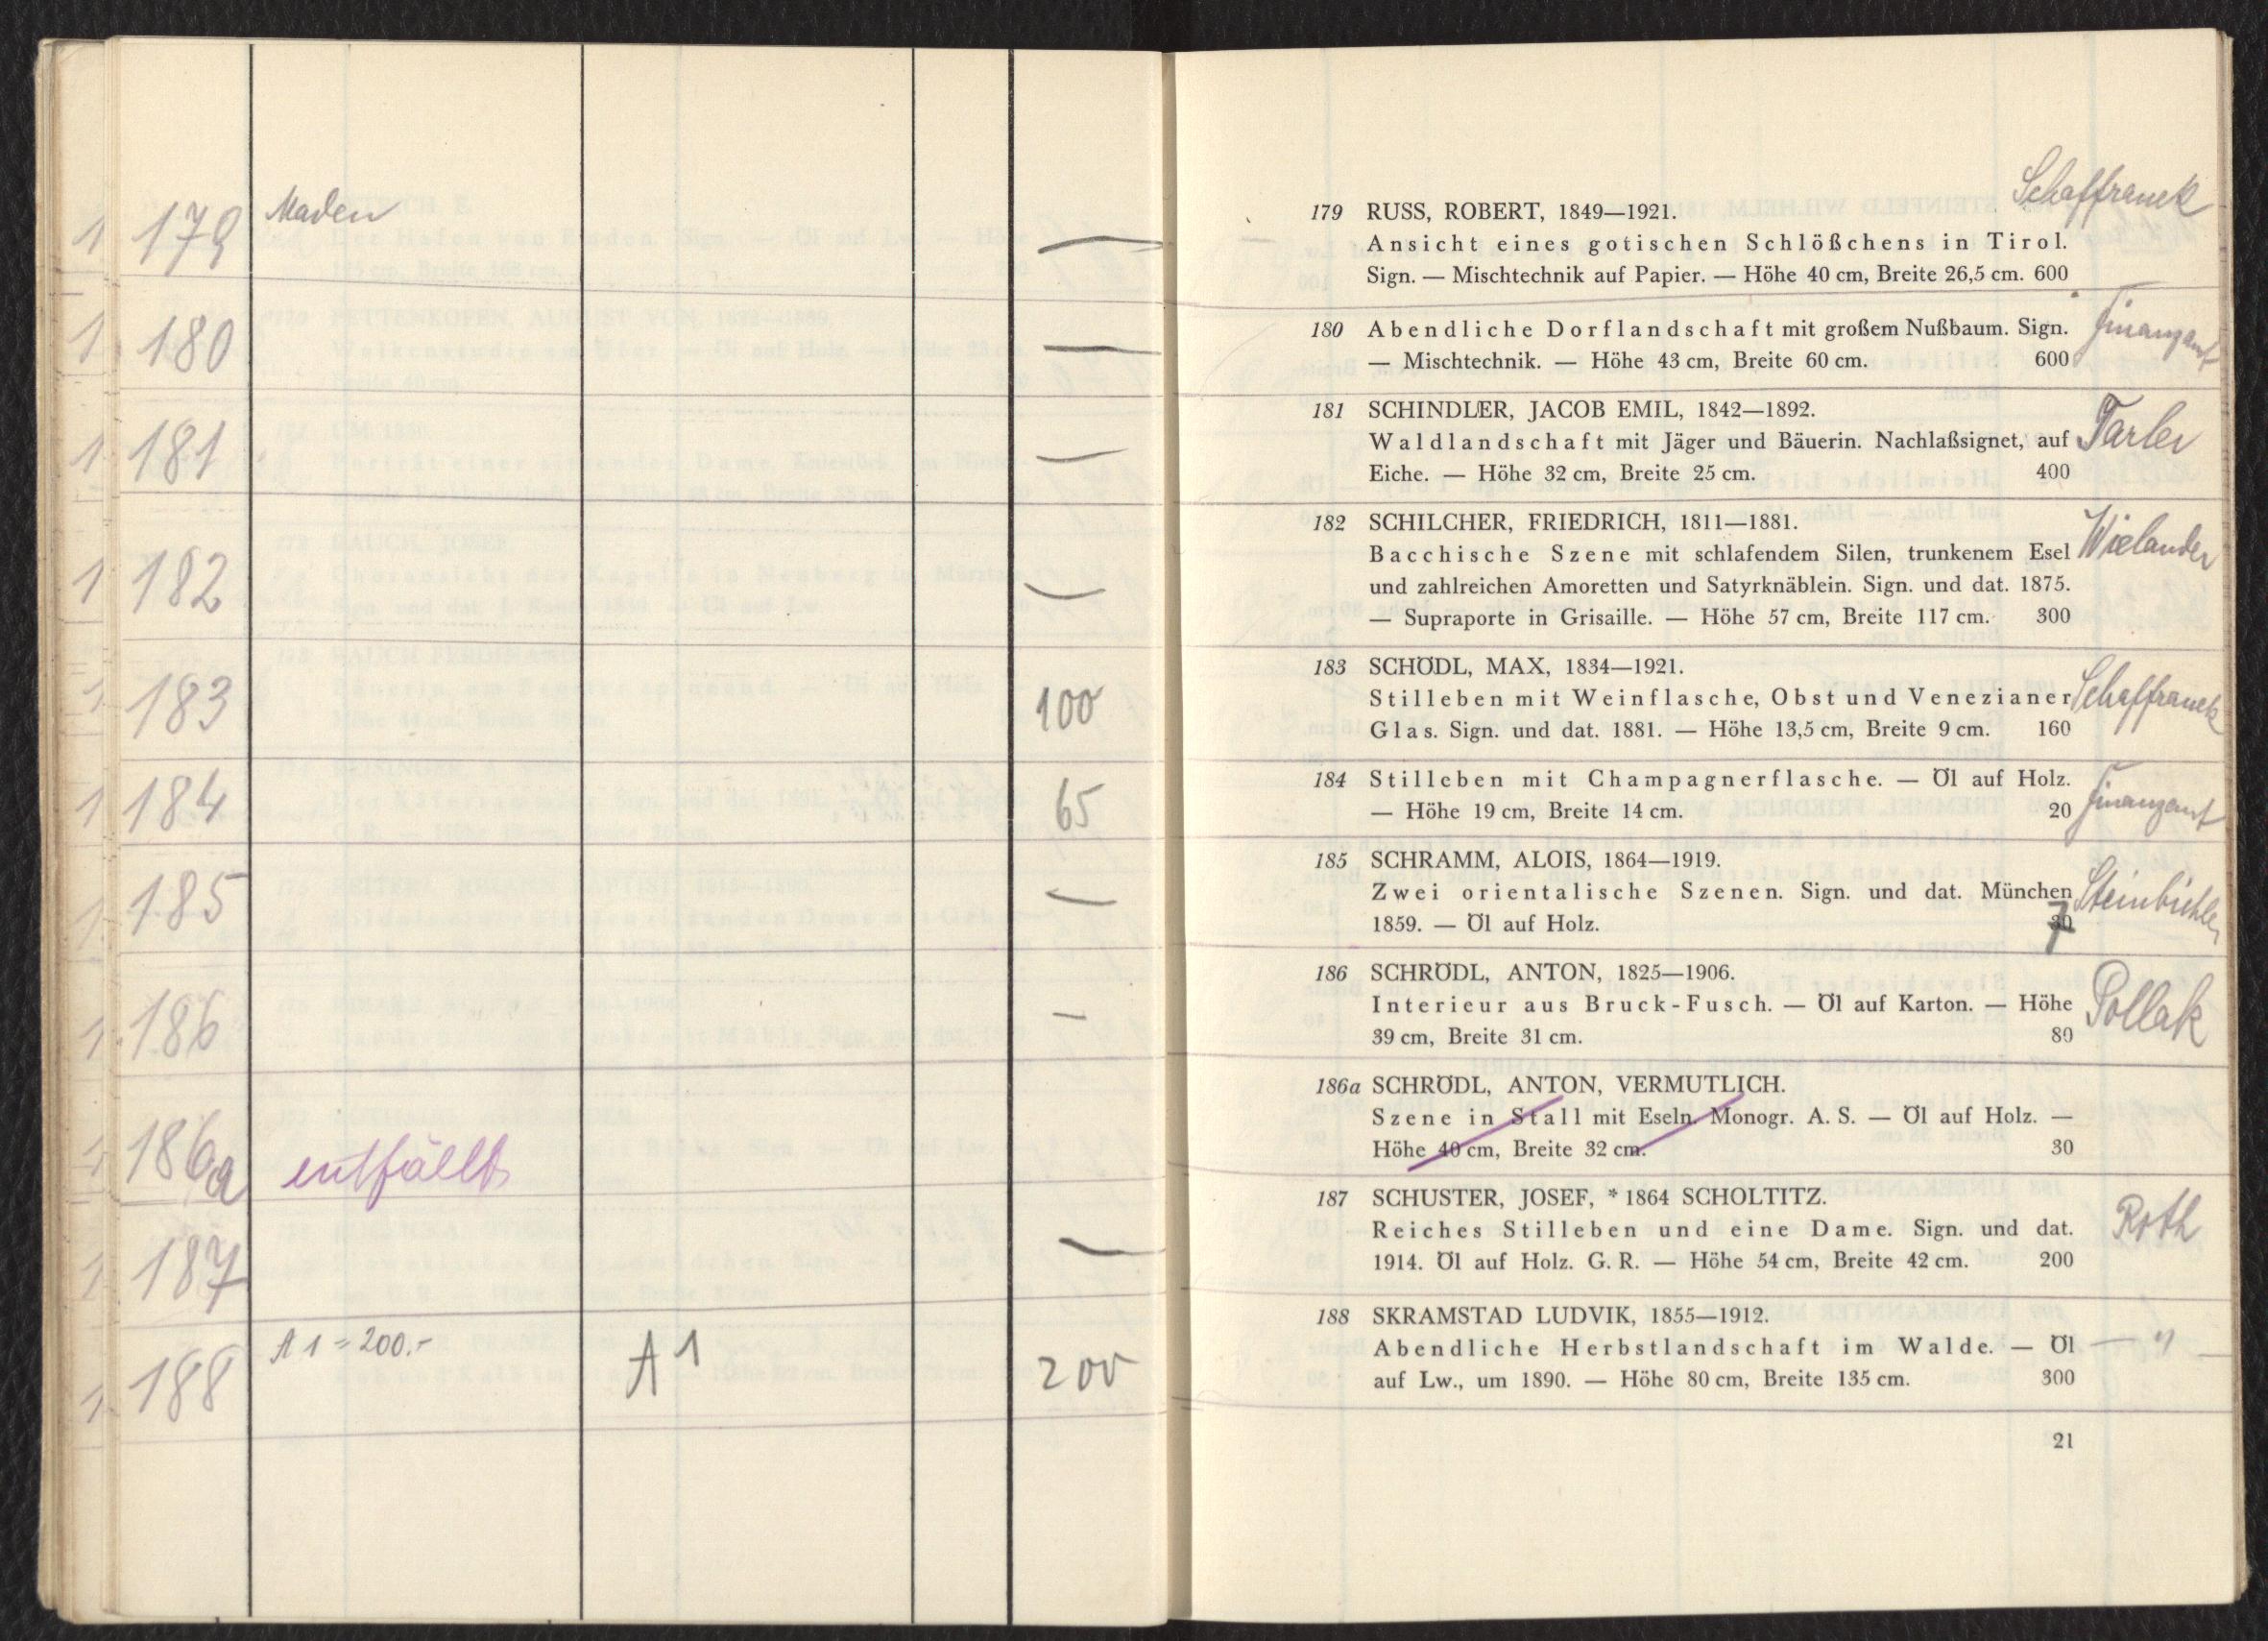 1 179 —
1 180 —
1 181 —
1 182 —
1 183 100
1 184 65
1 185 —
1 186 —
1 186a entfällt
1 187 —
1 188 A 1 = 200.- A 1 200
Schaffranek
179 RUSS, ROBERT, 1849—1921.
Ansicht eines gotischen Schlößchens in Tirol.
Sign. — Mischtechnik auf Papier. — Höhe 40 cm, Breite 26,5 cm. 600
180 Abendliche Dorflandschaft mit großem Nußbaum. Sign. Finanzamt
— Mischtechnik. — Höhe 43 cm, Breite 60 cm. 600
181 SCHINDLER, JACOB EMIL, 1842—1892.
Waldlandschaft mit Jäger und Bäuerin. Nachlaßsignet, auf
Eiche. — Höhe 32 cm, Breite 25 cm. 400
182 SCHILCHER, FRIEDRICH, 1811—1881.
Bacchische Szene mit schlafendem Silen, trunkenem Esel Wielander
und zahlreichen Amoretten und Satyrknäblein. Sign. und dat. 1875.
— Supraporte in Grisaille. — Höhe 57 cm, Breite 117 cm. 300
183 SCHÖDL, MAX, 1834—1921.
Stilleben mit Weinflasche, Obst und Venezianer Schaffranek
Glas. Sign. und dat. 1881. — Höhe 13,5 cm, Breite 9 cm. 160
184 Stilleben mit Champagnerflasche. — Öl auf Holz.
— Höhe 19 cm, Breite 14 cm. 20 Finanzamt
185 SCHRAMM, ALOIS, 1864—1919.
Zwei orientalische Szenen. Sign. und dat. München
1859. — Öl auf Holz.
186 SCHRÖDL, ANTON, 1825—1906.
Interieur aus Bruck-Fusch. — Öl auf Karton. — Höhe Pollak
39 cm, Breite 31 cm. 80
186a SCHRÖDL, ANTON, VERMUTLICH.
Szene in Stall mit Eseln. Monogr. A. S. — Öl auf Holz. —
Höhe 40 cm, Breite 32 cm. 30
187 SCHUSTER, JOSEF, * 1864 SCHOLTITZ.
Reiches Stilleben und eine Dame. Sign. und dat. Roth
1914. Öl auf Holz. G. R. — Höhe 54 cm, Breite 42 cm. 200
188 SKRAMSTAD LUDVIK, 1855—1912.
Abendliche Herbstlandschaft im Walde. — Öl — " —
auf Lw., um 1890. — Höhe 80 cm, Breite 135 cm. 300
21